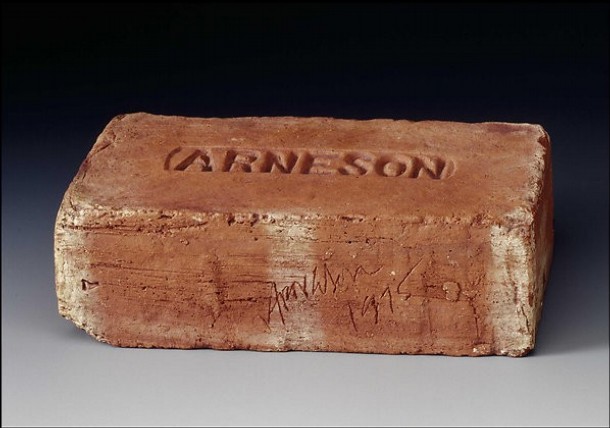 ARNESON
Arneson
1975